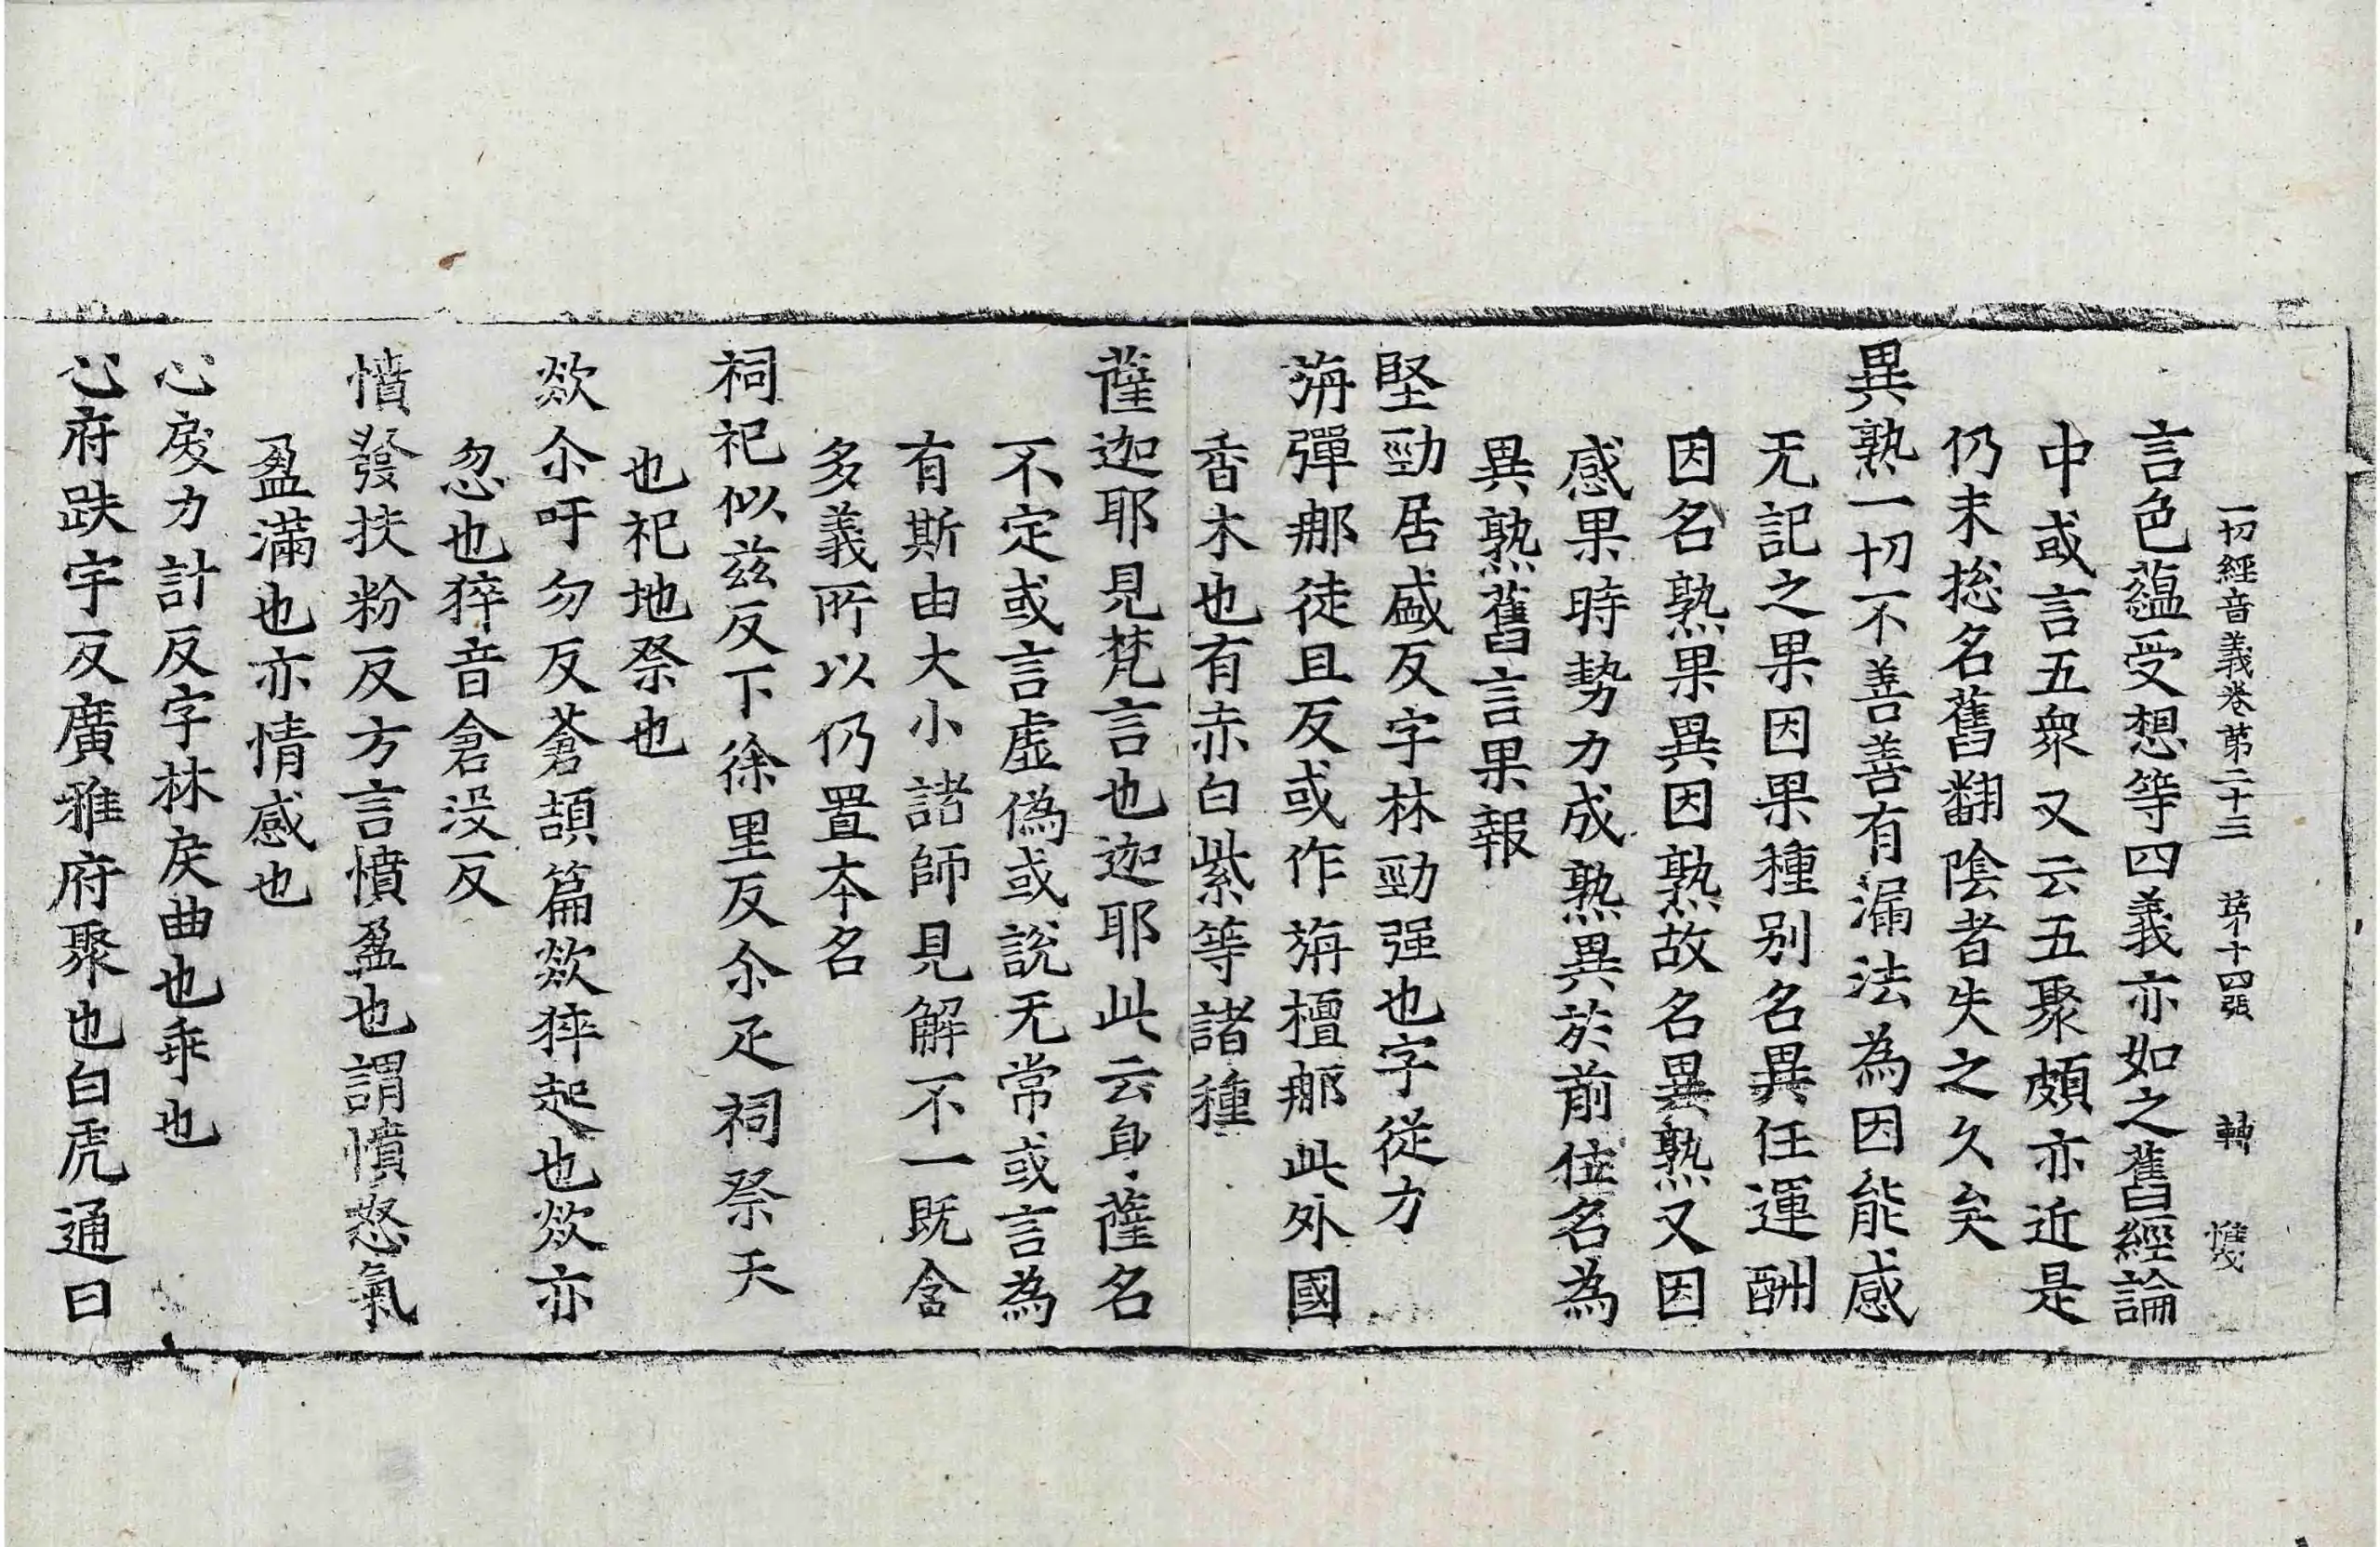 一切經音義卷第二十三　第十四張　轉
言色蘊受想等四義亦如之舊經論
中或言五衆又云五聚頗亦近是
仍未捴名舊翻陰者失之久矣
異熟一切不善善有漏法為因能感
无記之果因果種别名異任運酬
因名熟果異因熟故名異熟又因
感果時勢力成熟異於前位名為
異熟舊言果報
堅勁居盛反字林勁强也字從力
旃彈郍徒旦反或作旃檀郍此外國
香木也有赤白紫等諸種
薩迦耶見梵言也迦耶此云身薩名
不定或言虛偽或說无常或言為
有斯由大小諸師見解不一既含
多義所以仍置本名
祠祀似兹反下徐里反尒疋祠祭天
也祀地祭也
欻尒吁勿反蒼頡篇欻猝起也欻亦
忽也猝音倉没反
憤發扶粉反方言憤盈也謂憤怒氣
盈滿也亦情感也
心戾力計反字林戾曲也乖也
心府趺宇反廣雅府聚也白虎通曰